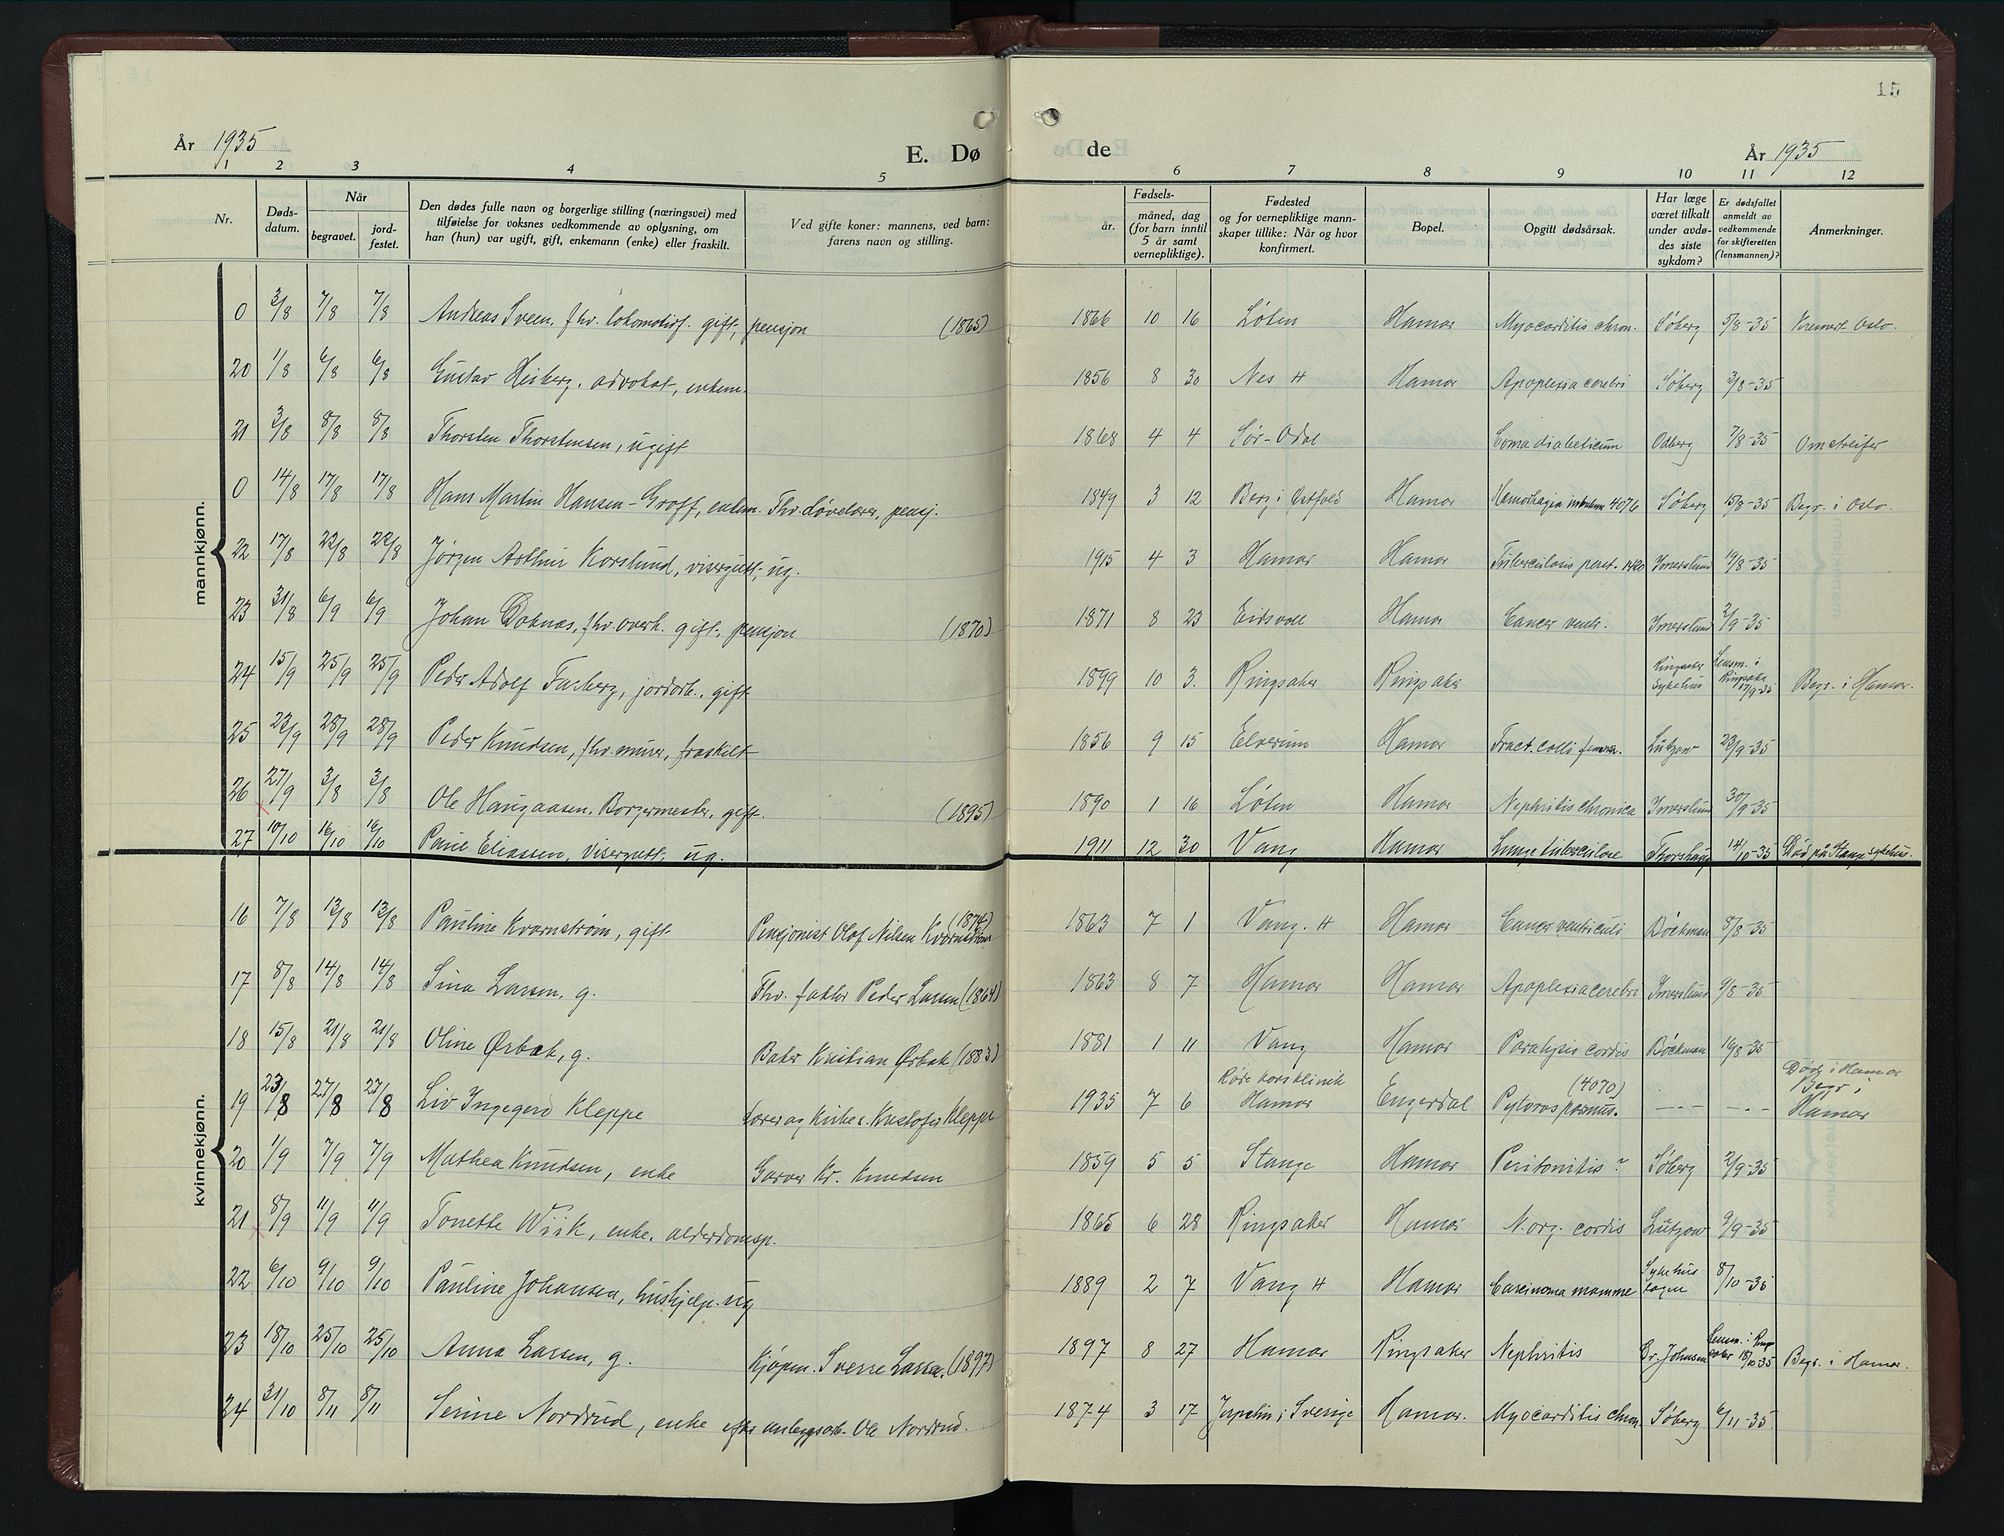 15
År 1935
E. Dø
de
År 1935
1 2 3 4 5
6 7 8 9 10 11 12
Nr.
Døds-
datum.
Når
begravet.
jord-
festet.
Den dødes fulle navn og borgerlige stilling (næringsvei) med
tilføielse for voksnes vedkommende av oplysning, om
han (hun) var ugift, gift, enkemann (enke) eller fraskilt.
Ved gifte koner: mannens, ved barn:
farens navn og stilling.
Fødsels-
år.
måned, dag
(for barn inntil
5 år samt
vernepliktige).
Fødested
og for vernepliktige mann-
skaper tillike: Når og hvor
konfirmert.
Bopel.
Opgitt dødsårsak.
Har læge
været tilkalt
under avdø-
des siste
sykdom?
Er dødsfallet
anmeldt av
vedkommende
for skifteretten
(lensmannen)?
Anmerkninger.
mannkjønn.
0 3/8 7/8 7/8 Andreas Sveen, fhv. lokomotivf. gift, pensjon (1865) 1866 10 16 Løten Hamar Myocarditis chron. Søberg 5/8-35 Kremert Oslo.
20 1/8 6/8 6/8 Gustav Heiberg, advokat, enkem. 1856 8 30 Nes H Hamar Apoplexia cerebri Søberg 3/8-35
21 3/8 8/8 8/8 Thorsten Thorstensen, ugift 1868 4 4 Sør-Odal Coma diabeticum Odberg 7/8-35 Omstreifer
0 14/8 17/8 17/8 Hans Martin Hansen-Groff, enkem. Fhv. døvelærer, pensj. 1849 3 12 Berg i Østfold Hamar 4076 Søberg 15/8-35 Begr. i Oslo.
22 17/8 22/8 22/8 Jørgen Arthur Korslund, visergutt, ug. 1915 4 3 Hamar Hamar Tuberculosis Imerslund 19/8-35
23 31/8 6/9 6/9 Johan Doknæs, fhv. overk. gift, pensjon (1870) 1871 8 23 Eidsvoll Hamar Cancer ventr. Imerslund 2/9-35
24 15/9 25/9 25/9 Peder Adolf Furberg, jordarb., gift 1899 10 3. Ringsaker Ringsaker Ringsaker Sykehus Lensm. i Ringsaker 17/9-35 Begr. i Hamar.
25 23/9 28/9 28/9 Peder Knudsen, fhv. murer, fraskilt 1856 9 15 Elverum Hamar Fract. colli femor. Lützow 23/9-35
26 27/9 3/8 3/8 Ole Haugaasen, Borgermester, gift. (1895) 1890 1 16 Løten Hamar Nephritis chronica Imerslund 30/9-35
27 10/10 16/10 16/10 Paul Eliassen, visergutt, ug. 1911 12 30 Vang Hamar Lungetuberculose Thorshaug 14/10-35 Død på Stange sykehus.
kvinnekjønn.
16 7/8 13/8 13/8 Pauline Kvarnstrøm, gift Pensjonist Olof Nilsen Kvarnstrøm (1874) 1863 7 1 Vang. H Hamar Cancer ventriculi Bøckman 8/8-35
17 8/8 14/8 14/8 Sina Larsen, g. Fhv. faktor Peder Larsen (1864) 1863 8 7 Hamar Hamar Apoplexia cerebri Imerslund 9/8-35
18 15/8 21/8 21/8 Oline Ørbæk, g. Baker Kristian Ørbæk (1883) 1881 1 11 Vang Hamar Paralysis cordis Bøckman 16/8-35
19 23/8 27/8 27/8 Liv Ingegerd Kleppe Lærer og kirkes. Kristofer Kleppe 1935 7 6 Røde kors klinik Hamar Engerdal (4070) Pylorospasmus. --- --- Død i Hamar Begr i Hamar
20 1/9 7/9 7/9 Mathea Knudsen, enke Garver Kr. Knudsen 1859 5 5 Stange Hamar Peritonitis? Søberg 2/9-35
21 8/9 11/9 11/9 Tonette Wiik, enke, alderdomsp. 1865 6 28 Ringsaker Hamar N. org. cordis Lützow 9/9-35
22 6/10 9/10 9/10 Pauline Johansen, hushjelp. ug 1889 2 7 Vang H Hamar Carcinoma mamme Sykehus 8/10-35
23 18/10 25/10 25/10 Anna Larsen, g. Kjøpm. Sverre Larsen. (1897) 1897 8 27 Hamar Ringsaker Nephritis Dr. Johnsen Lensm. i Ringsaker 18/10 35 Begr. i Hamar.
24 31/10 8/11 8/11 Serine Nordrud, enke efter anleggsarb. Ole Nordrud. 1874 3 17 i Sverige Hamar. Myocarditis chron. Søberg 6/11-35